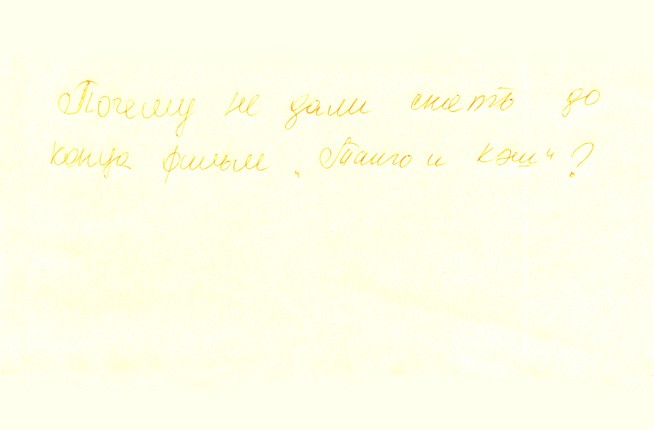 Почему не дали снять до
конца фильм „Танго и Кэш“?